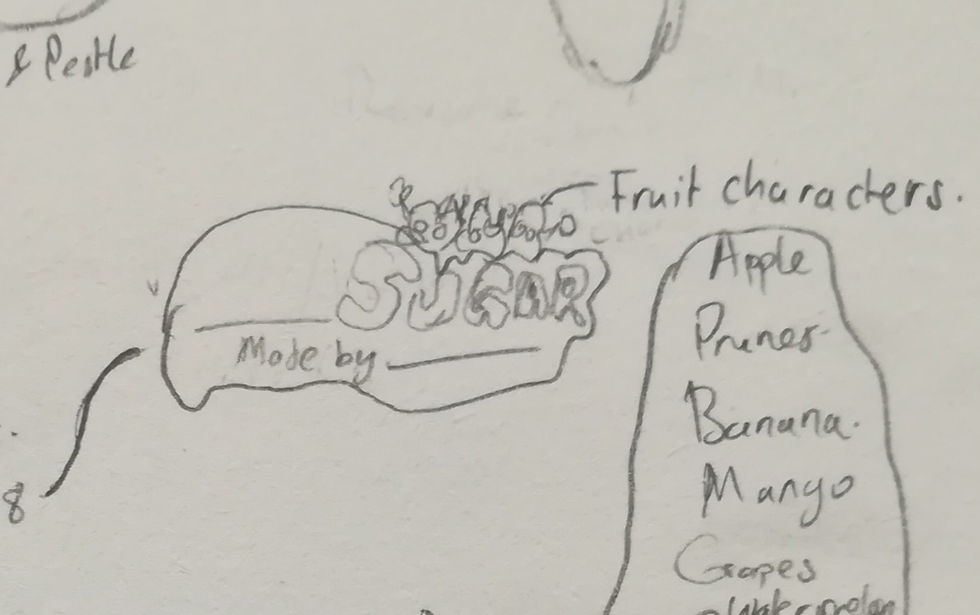 & Pestle
Fruit characters.
SUGAR
Made by
Apple
Prunes
Banana.
Mango
Grapes
Watermelon
8